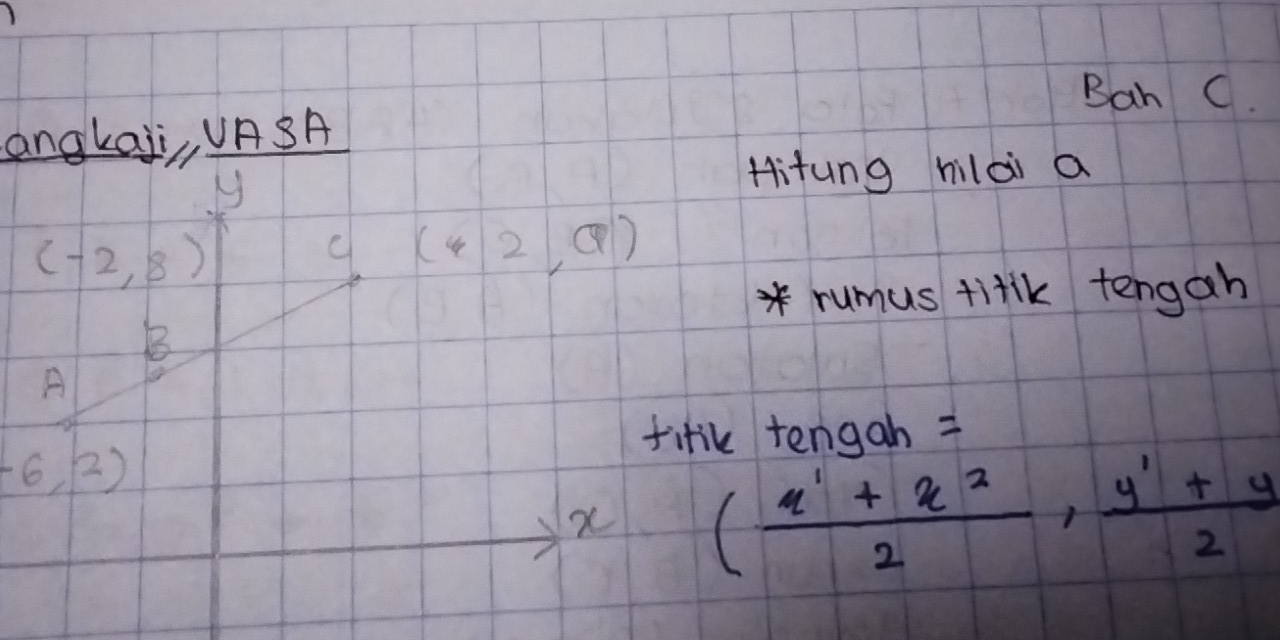 angkaji,, UASA
Bah C.
Hitung nilai a
y
(-2, 8)
C
(2, a)
* rumus titik tengah
B
A
-6, 2)
titik tengah =
x
( x' + x² / 2 , y' + y / 2